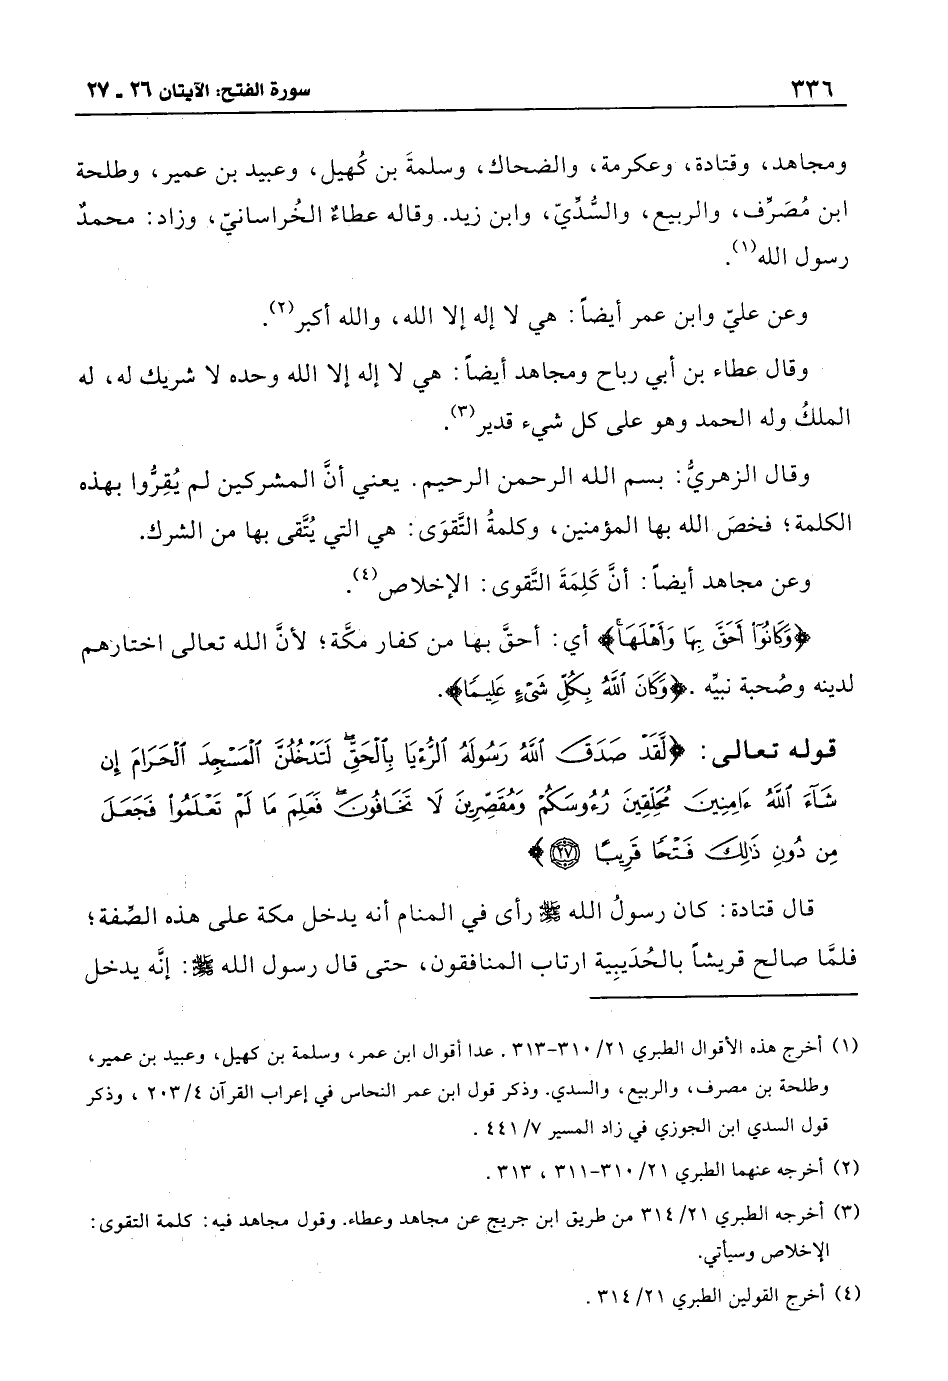 ٣٣٦
سورة الفتح: الآيتان ٢٦ - ٢٧
ومجاهد، وقتادة، وعكرمة، والضحاك، وسلمةَ بن كُهيل، وعبيد بن عمير، وطلحة
ابن مُصَرِّف، والربيع، والسُّدِّيّ، وابن زيد. وقاله عطاءٌ الخُراسانيّ، وزاد: محمدٌ
رسول الله(١).
وعن عليّ وابن عمر أيضاً: هي لا إله إلا الله، والله أكبر(٢).
وقال عطاء بن أبي رباح ومجاهد أيضاً: هي لا إله إلا الله وحده لا شريك له، له
الملكُ وله الحمد وهو على كل شيء قدير(٣).
وقال الزهريُّ: بسم الله الرحمن الرحيم. يعني أنَّ المشركين لم يُقِرُّوا بهذه
الكلمة؛ فخصَ الله بها المؤمنين، وكلمةُ التَّقوَى: هي التي يُتَّقى بها من الشرك.
وعن مجاهد أيضاً: أنَّ كَلِمَةَ التَّقوى: الإخلاص(٤).
﴿وَكَانُوٓاْ أَحَقَّ بِهَا وَأَهْلَهَاۚ﴾ أي: أحقَّ بها من كفار مكَّة؛ لأنَّ الله تعالى اختارهم
لدينه وصُحبة نبيِّه. ﴿وَكَانَ ٱللَّهُ بِكُلِّ شَىْءٍ عَلِيمًا﴾.
قوله تعالى: ﴿لَّقَدْ صَدَقَ ٱللَّهُ رَسُولَهُ ٱلرُّءْيَا بِٱلْحَقِّۖ لَتَدْخُلُنَّ ٱلْمَسْجِدَ ٱلْحَرَامَ إِن
شَآءَ ٱللَّهُ ءَامِنِينَ مُحَلِّقِينَ رُءُوسَكُمْ وَمُقَصِّرِينَ لَا تَخَافُونَۖ فَعَلِمَ مَا لَمْ تَعْلَمُواْ فَجَعَلَ
مِن دُونِ ذَٰلِكَ فَتْحًا قَرِيبًا ٢٧﴾
قال قتادة: كان رسولُ الله ﷺ رأى في المنام أنه يدخل مكة على هذه الصِّفة؛
فلمَّا صالح قريشاً بالحُدَيبِية ارتاب المنافقون، حتى قال رسول الله ﷺ: إنَّه يدخل
(١) أخرج هذه الأقوال الطبري ٢١/ ٣١٠-٣١٣ . عدا أقوال ابن عمر، وسلمة بن كهيل، وعبيد بن عمير،
وطلحة بن مصرف، والربيع، والسدي. وذكر قول ابن عمر النحاس في إعراب القرآن ٤/ ٢٠٣ ، وذكر
قول السدي ابن الجوزي في زاد المسير ٧/ ٤٤١ .
(٢) أخرجه عنهما الطبري ٢١/ ٣١٠-٣١١ ، ٣١٣ .
(٣) أخرجه الطبري ٢١/ ٣١٤ من طريق ابن جريج عن مجاهد وعطاء. وقول مجاهد فيه: كلمة التقوى:
الإخلاص وسيأتي.
(٤) أخرج القولين الطبري ٢١/ ٣١٤ .